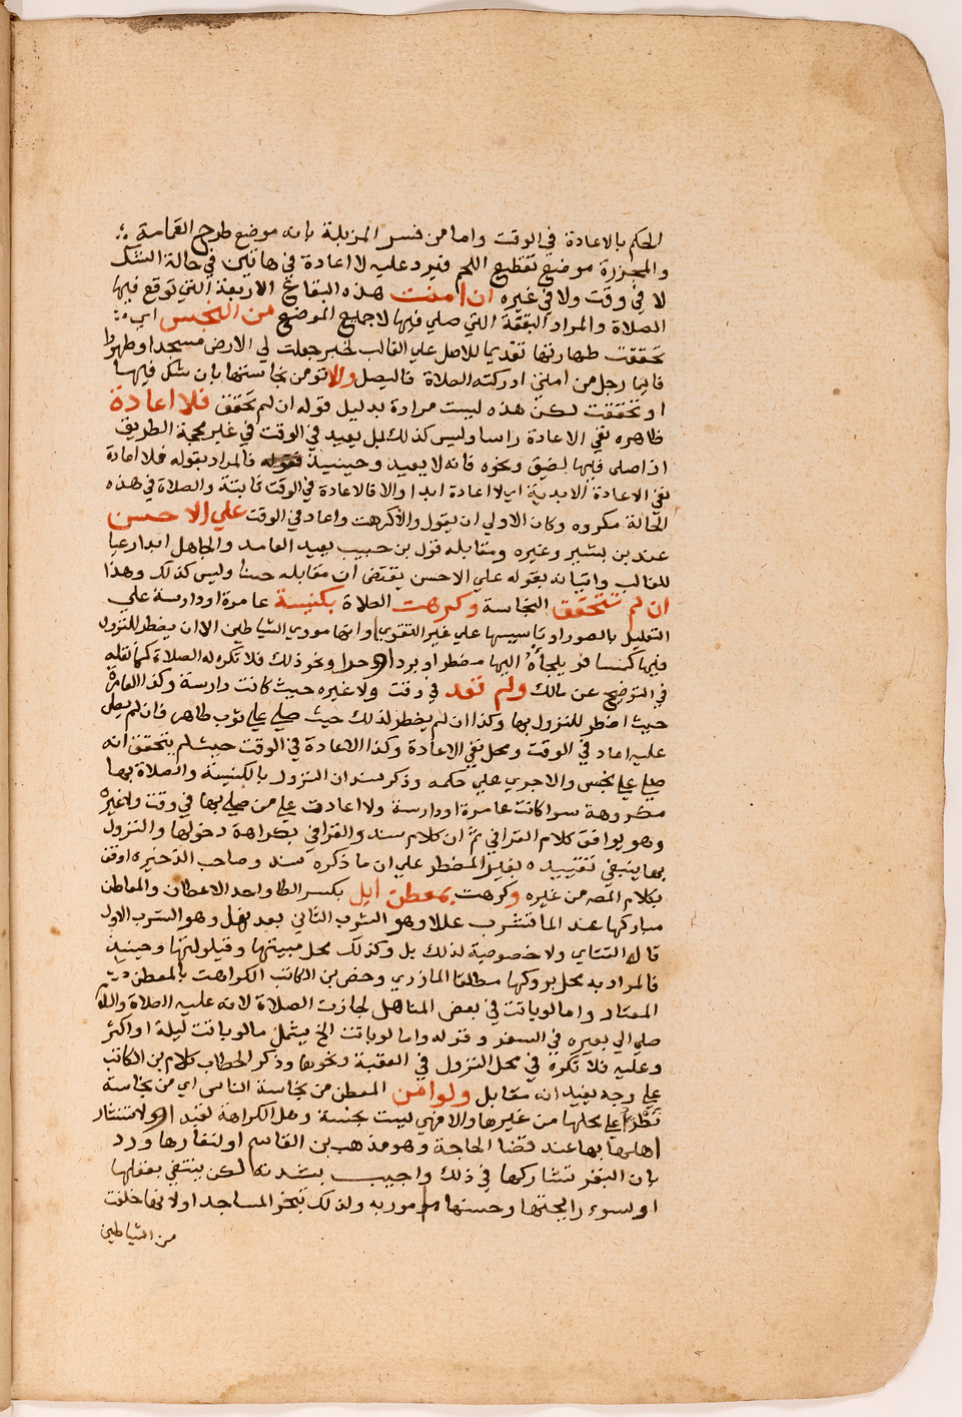 الحكم بالاعادة في الوقت واما من فسر المزبلة بانه موضع طرح القمامة
والمجزرة موضع تقطيع اللحم فيرد عليه لا اعادة في هاتين في حالة الشك
لا في وقت ولا في غيره ان امنت هذه البقاع الاربعة التي توقع فيها
الصلاة والمراد البقعة التي صلي فيها لا جميع الموضع من النجس اي
تحققت طهارتها تقديما للاصل علي الغالب لخبر جعلت لي الارض مسجدا وطهورا
فايما رجل من امتي ادركته الصلاة فاليصل والا تومن نجاستها بان شك فيها
او تحققت لكن هذه ليست مرادة بدليل قوله ان لم تحقق فلا اعادة
ظاهره نفي الاعادة راسا وليس كذلك بل يعيد في الوقت في غير محجة الطريق
اذا صلي فيها لضيق ونحوه فانه لا يعيد وحينيذ فالمراد بقوله فلا اعادة
نفي الاعادة الابدية اي لا اعادة ابدا والا فالاعادة في الوقت ثابتة والصلاة في هذه
الحالة مكروه وكان الاولي ان يقول والا كرهت واعاد في الوقت علي الاحسن
عند بن بشير وغيره ومقابله قول بن حبيب يعيد العامد والجاهل ابدا رعيا
للغالب واتيانه بقوله علي الاحسن يقتضي ان مقابله حسنا وليس كذلك وهذا
ان لم تتحقق النجاسة وكرهت الصلاة بكنيسة عامرة او دارسة علي
التعليل بالصور او تاسيسها علي غير التقوي وانها موري الشياطين الا ان يضطر للنزول
فيها كمسافر يلجأه اليها مضطر او برد او حرا ونحو ذلك فلا تكره له الصلاة كما نقله
في التوضيح عن مالك ولم تعد في وقت ولا غيره حيث كانت دارسة وكذا العامرة
حيث اضطر للنزول بها وكذا ان لم يضطر لذلك حيث صلي علي ثوب طاهر فان لم يصلي
عليه اعاد في الوقت ومحل نفي الاعادة وكذا الاعادة في الوقت حيث لم يتحقق انه
صلي علي نجس والا جري علي حكمه وذكر سند ان النزول بالكنيسة والصلاة بها
مكروهة سوا كانت عامرة او دارسة ولا اعادة علي من صلي بها في وقت ولا غيره
وهو يوافق كلام القرافي ثم ان كلام سند والقرافي بكراهة دخولها والنزول
بها ينبغي تقييده بغير المضطر علي ان ما ذكره سند وصاحب الذخيرة اوفق
بكلام المصه من غيره وكرهت بمعطن ابل بكسر الطا واحد الاعطان والمعاطن
مباركها عند الما لتشرب عللا وهو الشرب الثاني بعد نهل وهو الشرب الاول
قاله التتاي ولا خصوصية لذلك بل وكذلك محل مبيتها وقيلولتها وحينيذ
فالمراد به محل بروكها مطلقا المازري وخص بن الكاتب الكراهت بالمعطن
المعتاد واما لو باتت في بعض المناهل لجازت الصلاة لانه عليه الصلاة والسلام
صلي الي بعيره في السفر وقوله واما لو باتت الخ يشمل ما لو باتت ليلة او اكثر
وعليه فلا تكره في محل النزول في العقبة ونحوها وذكر الحطاب كلام بن الكاتب
علي وجه يفيد انه مقابل ولو امن المعطن من نجاسة الناس اي من نجاسة
تطرأ علي محلها من غيرها والا فهي ليست بنجسة وهل الكراهة لتعبد او لاستتار
اهلها بها عند قضا الحاجة وهو مذهب بن القاسم او لنفارها ورد
بان البقر تشاركها في ذلك واجيب بشدته لكن ينتفي بعقلها
او لسوء رايحتها وحسنها مامور به ولذلك تبخر المساجد او لانها خلقت
من الشياطين